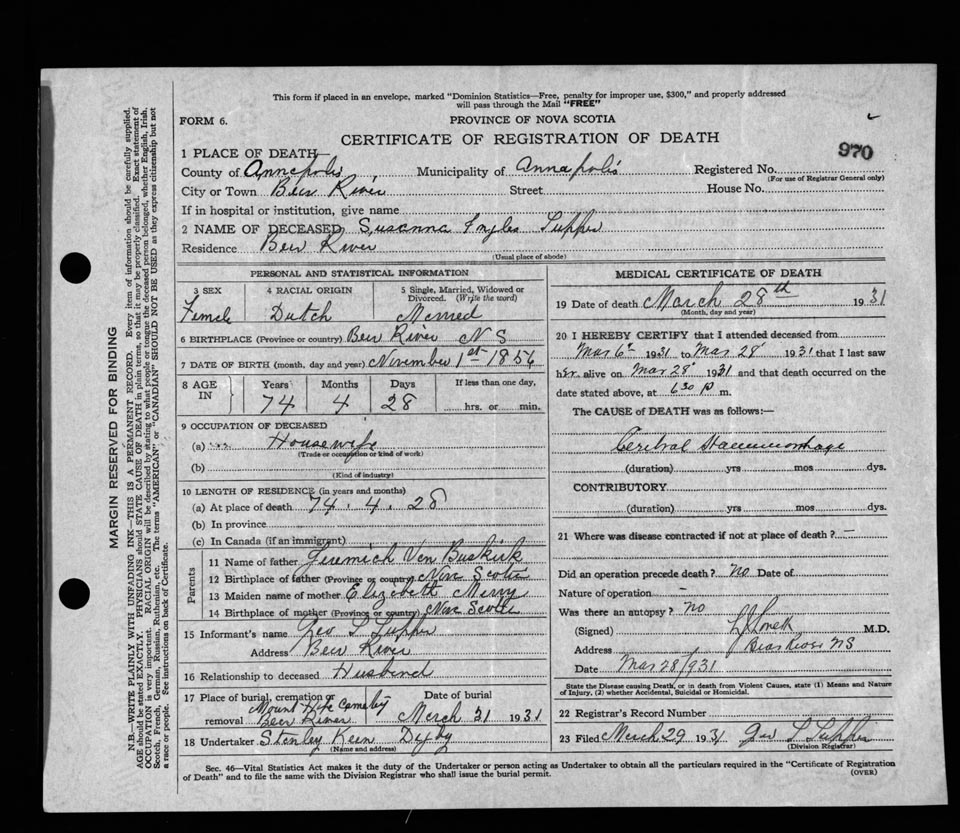 This form if placed in an envelope, marked "Dominion Statistics—Free, penalty for improper use, $300," and properly addressed
will pass through the Mail "FREE"
FORM 6.
PROVINCE OF NOVA SCOTIA
CERTIFICATE OF REGISTRATION OF DEATH
970
1 PLACE OF DEATH
County of Annapolis Municipality of Annapolis Registered No.
(For use of Registrar General only)
City or Town Bear River Street House No.
If in hospital or institution, give name
2 NAME OF DECEASED Susanna Tupper
Residence Bear River
(Usual place of abode)
PERSONAL AND STATISTICAL INFORMATION
3 SEX 4 RACIAL ORIGIN 5 Single, Married, Widowed or
Divorced. (Write the word)
Female Dutch Married
6 BIRTHPLACE (Province or country) Bear River N S
7 DATE OF BIRTH (month, day and year) November 1st 1856
8 AGE IN Years Months Days If less than one day,
74 4 28 hrs. or min.
9 OCCUPATION OF DECEASED
(a) Housewife
(Trade or occupation or kind of work)
(b)
(Kind of industry)
10 LENGTH OF RESIDENCE (in years and months)
(a) At place of death 74 . 4 . 28
(b) In province
(c) In Canada (if an immigrant)
Parents
11 Name of father Jeremiah Van Buskirk
12 Birthplace of father (Province or country) Nova Scotia
13 Maiden name of mother Elizabeth
14 Birthplace of mother (Province or country) Nova Scotia
15 Informant's name Geo L Tupper
Address Bear River
16 Relationship to deceased Husband
17 Place of burial, cremation or removal Date of burial
Mount Hope Cemetery
Bear River March 31 1931
18 Undertaker Stanley Digby
(Name and address)
MEDICAL CERTIFICATE OF DEATH
19 Date of death March 28th 1931
(Month, day and year)
20 I HEREBY CERTIFY that I attended deceased from
Mar 6 1931 to Mar 28 1931 that I last saw
her alive on Mar 28 1931 and that death occurred on the
date stated above, at 6 30 p m.
The CAUSE of DEATH was as follows:—
Cerebral Haemmorhage
(duration) yrs mos dys.
CONTRIBUTORY
(duration) yrs mos dys.
21 Where was disease contracted if not at place of death? —
Did an operation precede death? No Date of
Nature of operation –
Was there an autopsy? no
(Signed) M.D.
Address Bear River NS
Date Mar 28/931
State the Disease causing Death, or in death from Violent Causes, state (1) Means and Nature
of Injury, (2) whether Accidental, Suicidal or Homicidal.
22 Registrar's Record Number
23 Filed March 29 1931 Geo L Tupper
(Division Registrar)
Sec. 46—Vital Statistics Act makes it the duty of the Undertaker or person acting as Undertaker to obtain all the particulars required in the "Certificate of Registration
of Death" and to file the same with the Division Registrar who shall issue the burial permit.
(OVER)
MARGIN RESERVED FOR BINDING
N.B.—WRITE PLAINLY WITH UNFADING INK—THIS IS A PERMANENT RECORD. Every item of information should be carefully supplied.
AGE should be stated EXACTLY. PHYSICIANS should STATE CAUSE OF DEATH in plain terms, so that it may be properly classified. Exact statement of
OCCUPATION is very important. RACIAL ORIGIN will be described by stating to what people or tongue the deceased person belonged, whether English, Irish,
Scotch, French, German, Russian, Ruthenian, etc. The terms "AMERICAN" or "CANADIAN" SHOULD NOT BE USED as they express citizenship but not
a race or people. See instructions on back of Certificate.